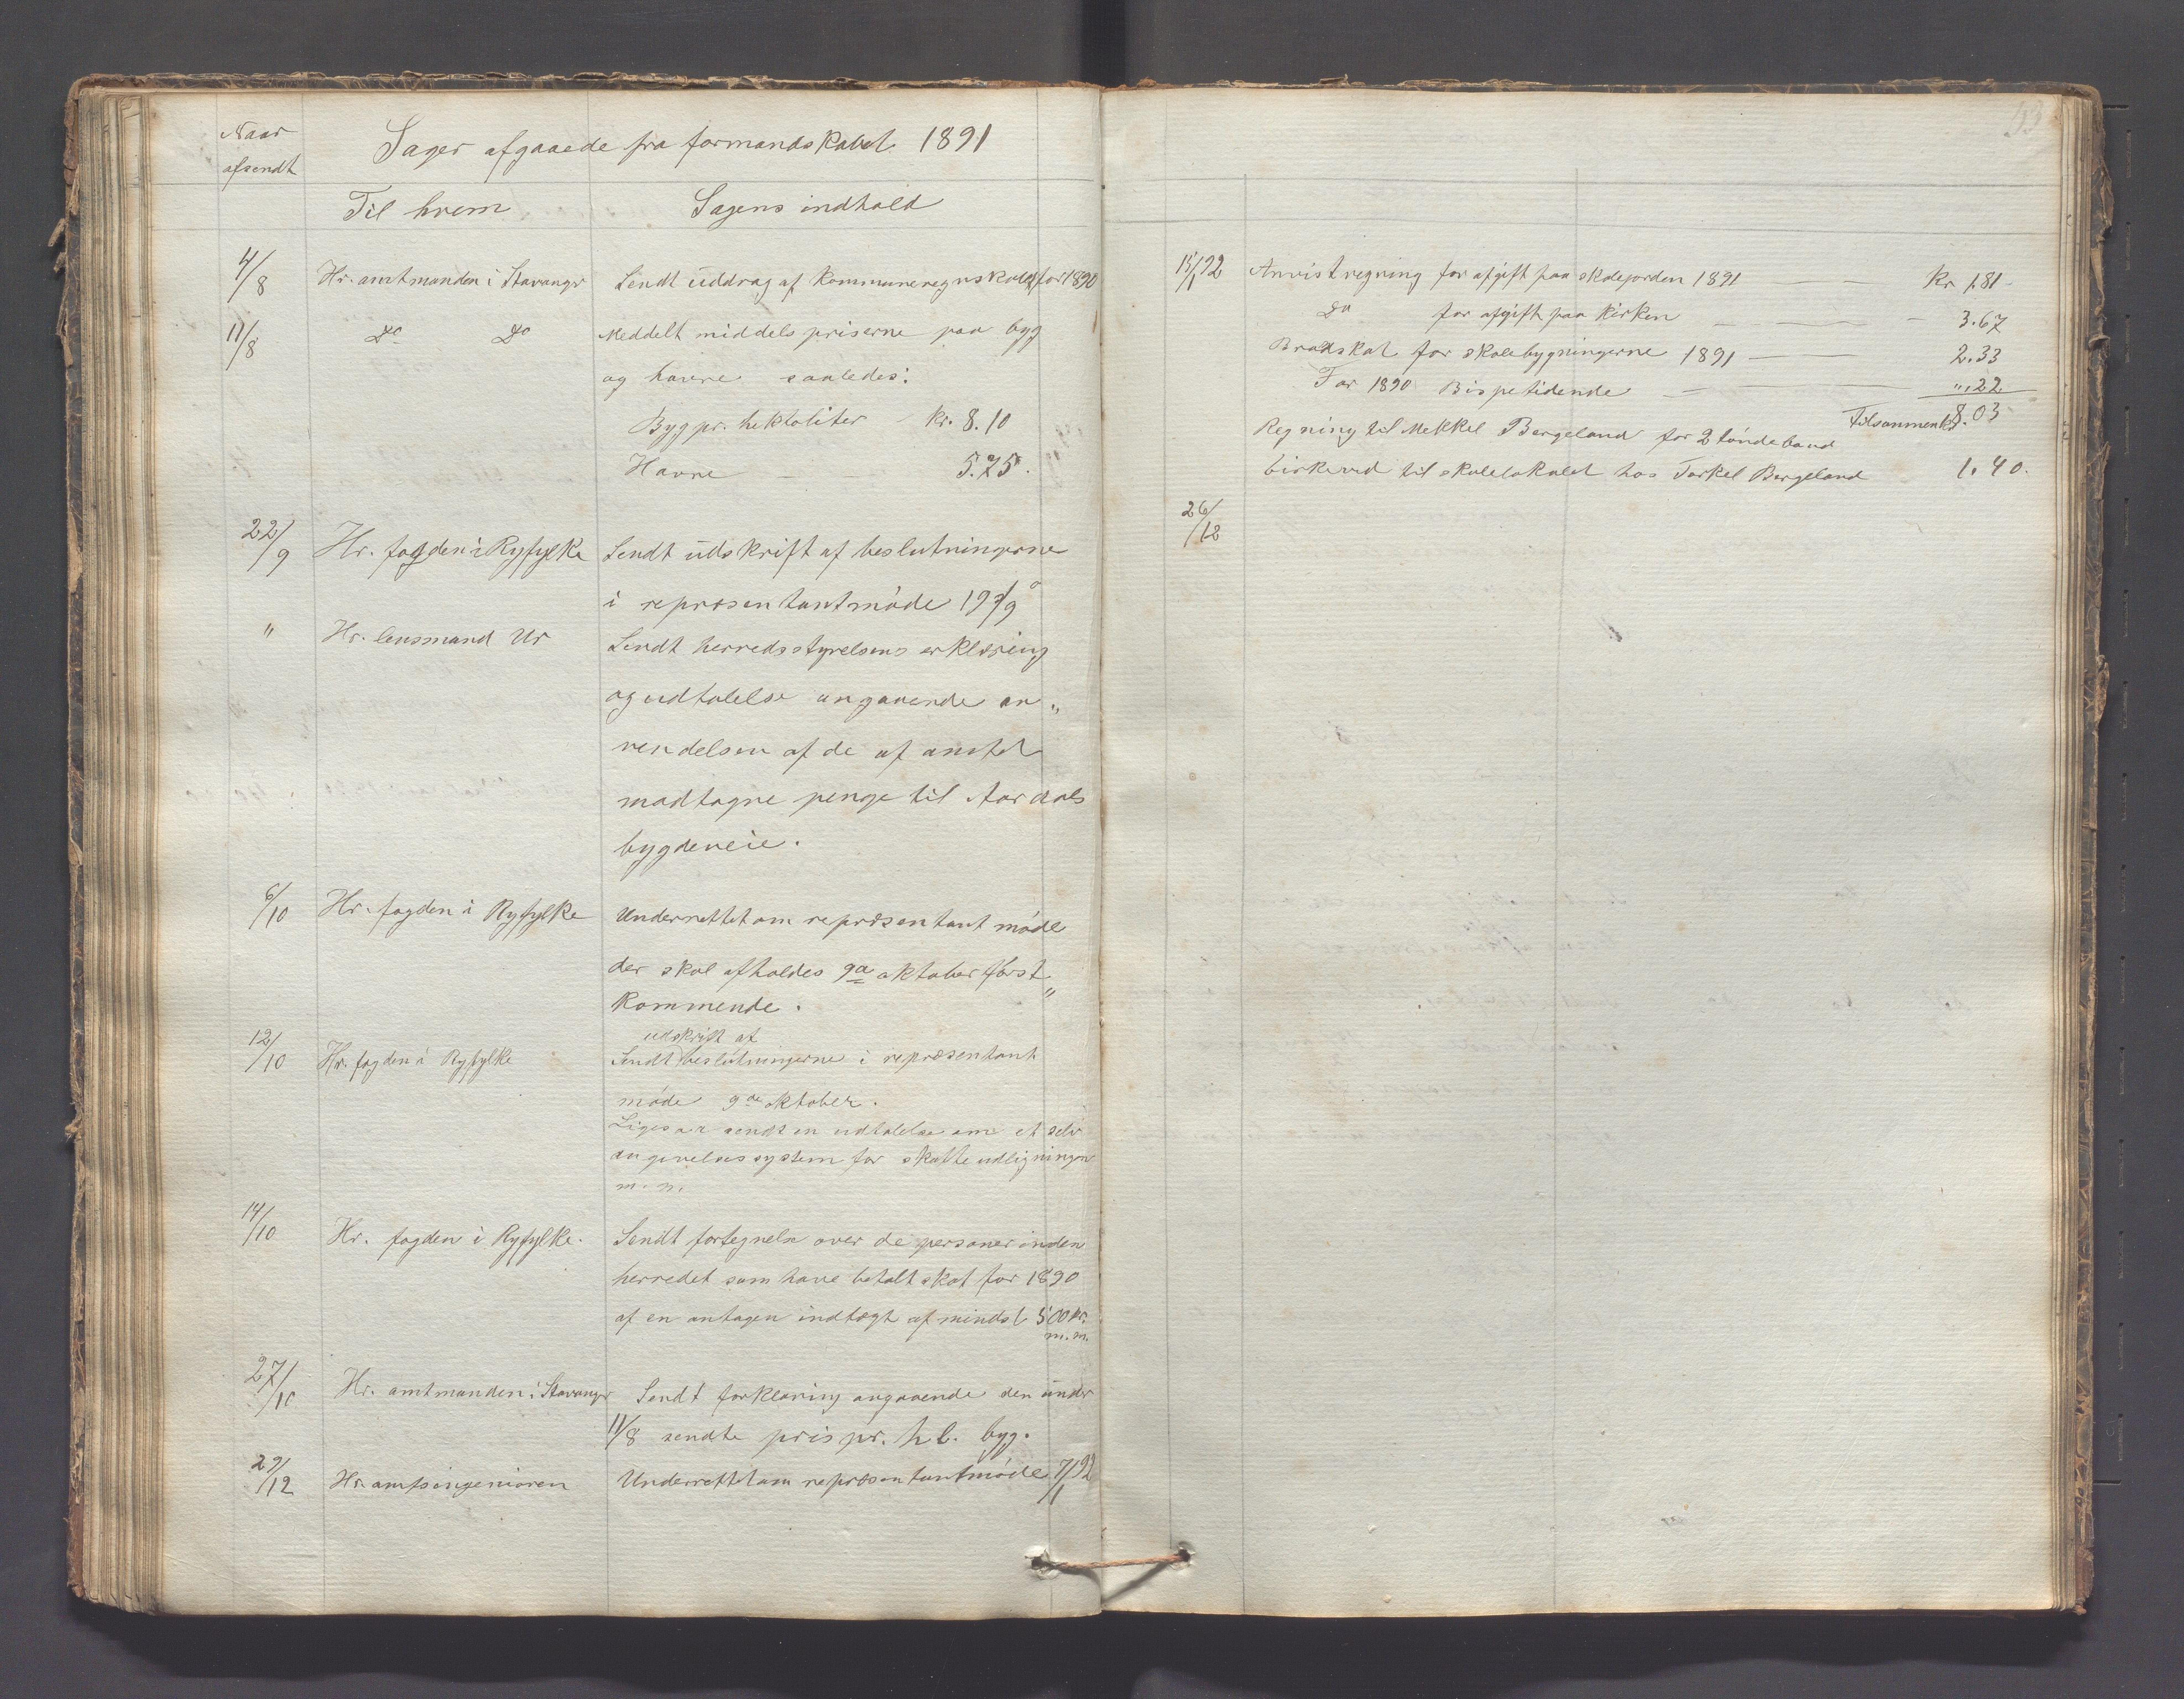 Naar
afsendt
Sager afgaaede fra formandskabet 1891
Til hvem
Sagens indhold
4/8 Hr. amtmanden i Stavanger Sendt uddrag af kommuneregnskabet for 1890
11/8 Do Do Meddelt middelspriserne paa byg
og havre saaledes:
Byg pr. hektoliter kr. 8.10
Havre — — 5.75.
22/9 Hr. fogden i Ryfylke Sendt udskrift af beslutningerne
i repræsentantmøde 19/9
" Hr. lensmand Ur Sendt herredsstyrelsens erklæring
og udtalelse angaaende an„
vendelsen af de af amtet
modtagne penge til Aardals
bygdeveie.
6/10 Hr. fogden i Ryfylke Underrettet om repræsentant møde
der skal afholdes 9de oktober først„
kommende.
udskrift af
12/10 Hr. fogden i Ryfylke Sendt beslutningerne i repræsentant
møde 9de oktober.
Ligesaa sendt en udtalelse om et selv
angivelsessystem for skatteudligningen
m. m.
14/10 Hr. fogden i Ryfylke. Sendt fortegnelse over de personer inden
herredet som have betalt skat for 1890
af en antagen indtægt af mindst 500 kr.
m. m.
27/10 Hr. amtmanden i Stavanger Sendt forklaring angaaende den under
11/8 sendte pris pr. hl. byg.
29/12 Hr. amtsingeniøren Underrettet om repræsentantmøde 7/1 92
53
15/1 92 Anvist regning for afgift paa skolejorden 1891 — — kr 1,81.
Do for afgift paa kirken — — — 3.67
Brandskat for skolebygningerne 1891 — — 2.33
For 1890 Bispetidende — — ",22
Tilsammen kr 8.03
Regning til Mekkel Bergeland for 2 tøndebaand
birkeved til skolelokalet hos Torkel Bergeland 1.40.
26/12